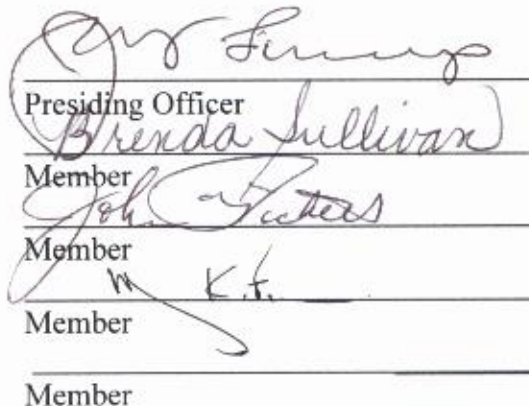 Presiding Officer
Brenda Sullivan
Member
John
Member
K.t.
Member
Member